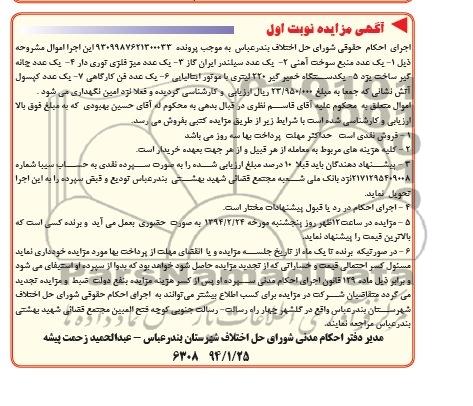 آگهی مزایده نوبت اول
اجرای احکام حقوقی شورای حل اختلاف بندرعباس به موجب پرونده ۹۳۰۹۹۸۷۶۲۱۳۰۰۰۳۳ این اجرا اموال مشروحه
ذیل ۱- یک عدد منبع سوخت آهنی ۲- یک عدد سیلندر ایران گاز ۳-یک عدد میز فلزی توری دار ۴- یک عدد چانه
گیر ساخت یزد ۵- یکدستگاه خمیر گیر ۲۲۰ لیتری با موتور ایتالیایی ۶- یک عدد فن کارگاهی ۷- یک عدد کپسول
آتش نشانی که جمعا به مبلغ ۲۳/۹۵۰/۰۰۰ ریال ارزیابی و کارشناسی گردیده و فعلا نزد امین نگهداری می شود .
اموال متعلق به محکوم علیه آقای قاسم نظری در قبال بدهی به محکوم له آقای حسین بهبودی که به مبلغ فوق بالا
ارزیابی و کارشناسی شده است با شرایط زیر از طریق مزایده کتبی بفروش می رسد.
۱ - فروش نقدی است حداکثر مهلت پرداخت بها سه روز می باشد
۲ - کلیه هزینه های مربوط به معامله از هر قبیل و از هر جهت بعهده خریدار است.
۳ - پیشنهاد دهندگان باید قبلا ۱۰ درصد مبلغ ارزیابی شده را به صورت سپرده نقدی به حساب سیبا شماره
۲۱۷۱۲۹۵۴۰۹۰۰۸ نزد بانک ملی شعبه مجتمع قضائی شهید بهشتی بندرعباس تودیع و قبض سپرده را به این اجرا
تحویل نماید.
۴ - اجرای احکام در رد یا قبول پیشنهادات مختار است.
۵ - مزایده در ساعت ۱۲ظهر روز پنجشنبه مورخه ۱۳۹۴/۲/۲۴ به صورت حضوری بعمل می آید و برنده کسی است که
بالاترین قیمت را پیشنهاد نماید.
۶ - در صورتیکه برنده تا یک ماه از تاریخ جلسه مزایده و یا انقضای مهلت از پرداخت بها مورد مزایده خودداری نماید
مسئول کسر احتمالی قیمت و خساراتی که از تجدید مزایده حاصل شود خواهد بود که بدوا از سپرده او استیفای می شود
و برابر ذیل ماده ۱۲۹ قانون اجرای احکام مدنی سپرده او پس از کسر هزینه مزایده بنفع دولت ضبط و مزایده تجدید
می گردد متقاضیان شرکت در مزایده برای کسب اطلاع بیشتر می‌توانند به اجرای احکام حقوقی شورای حل اختلاف
شهرستان بندرعباس واقع در گلشهر چهار راه رسالت- رسالت جنوبی کوچه فتح المبین مجتمع قضائی شهید بهشتی
بندرعباس مراجعه نمایند.
مدیر دفتر احکام مدنی شورای حل اختلاف شهرستان بندرعباس - عبدالحمید زحمت پیشه
۹۴/۱/۲۵ ۶۳۰۸